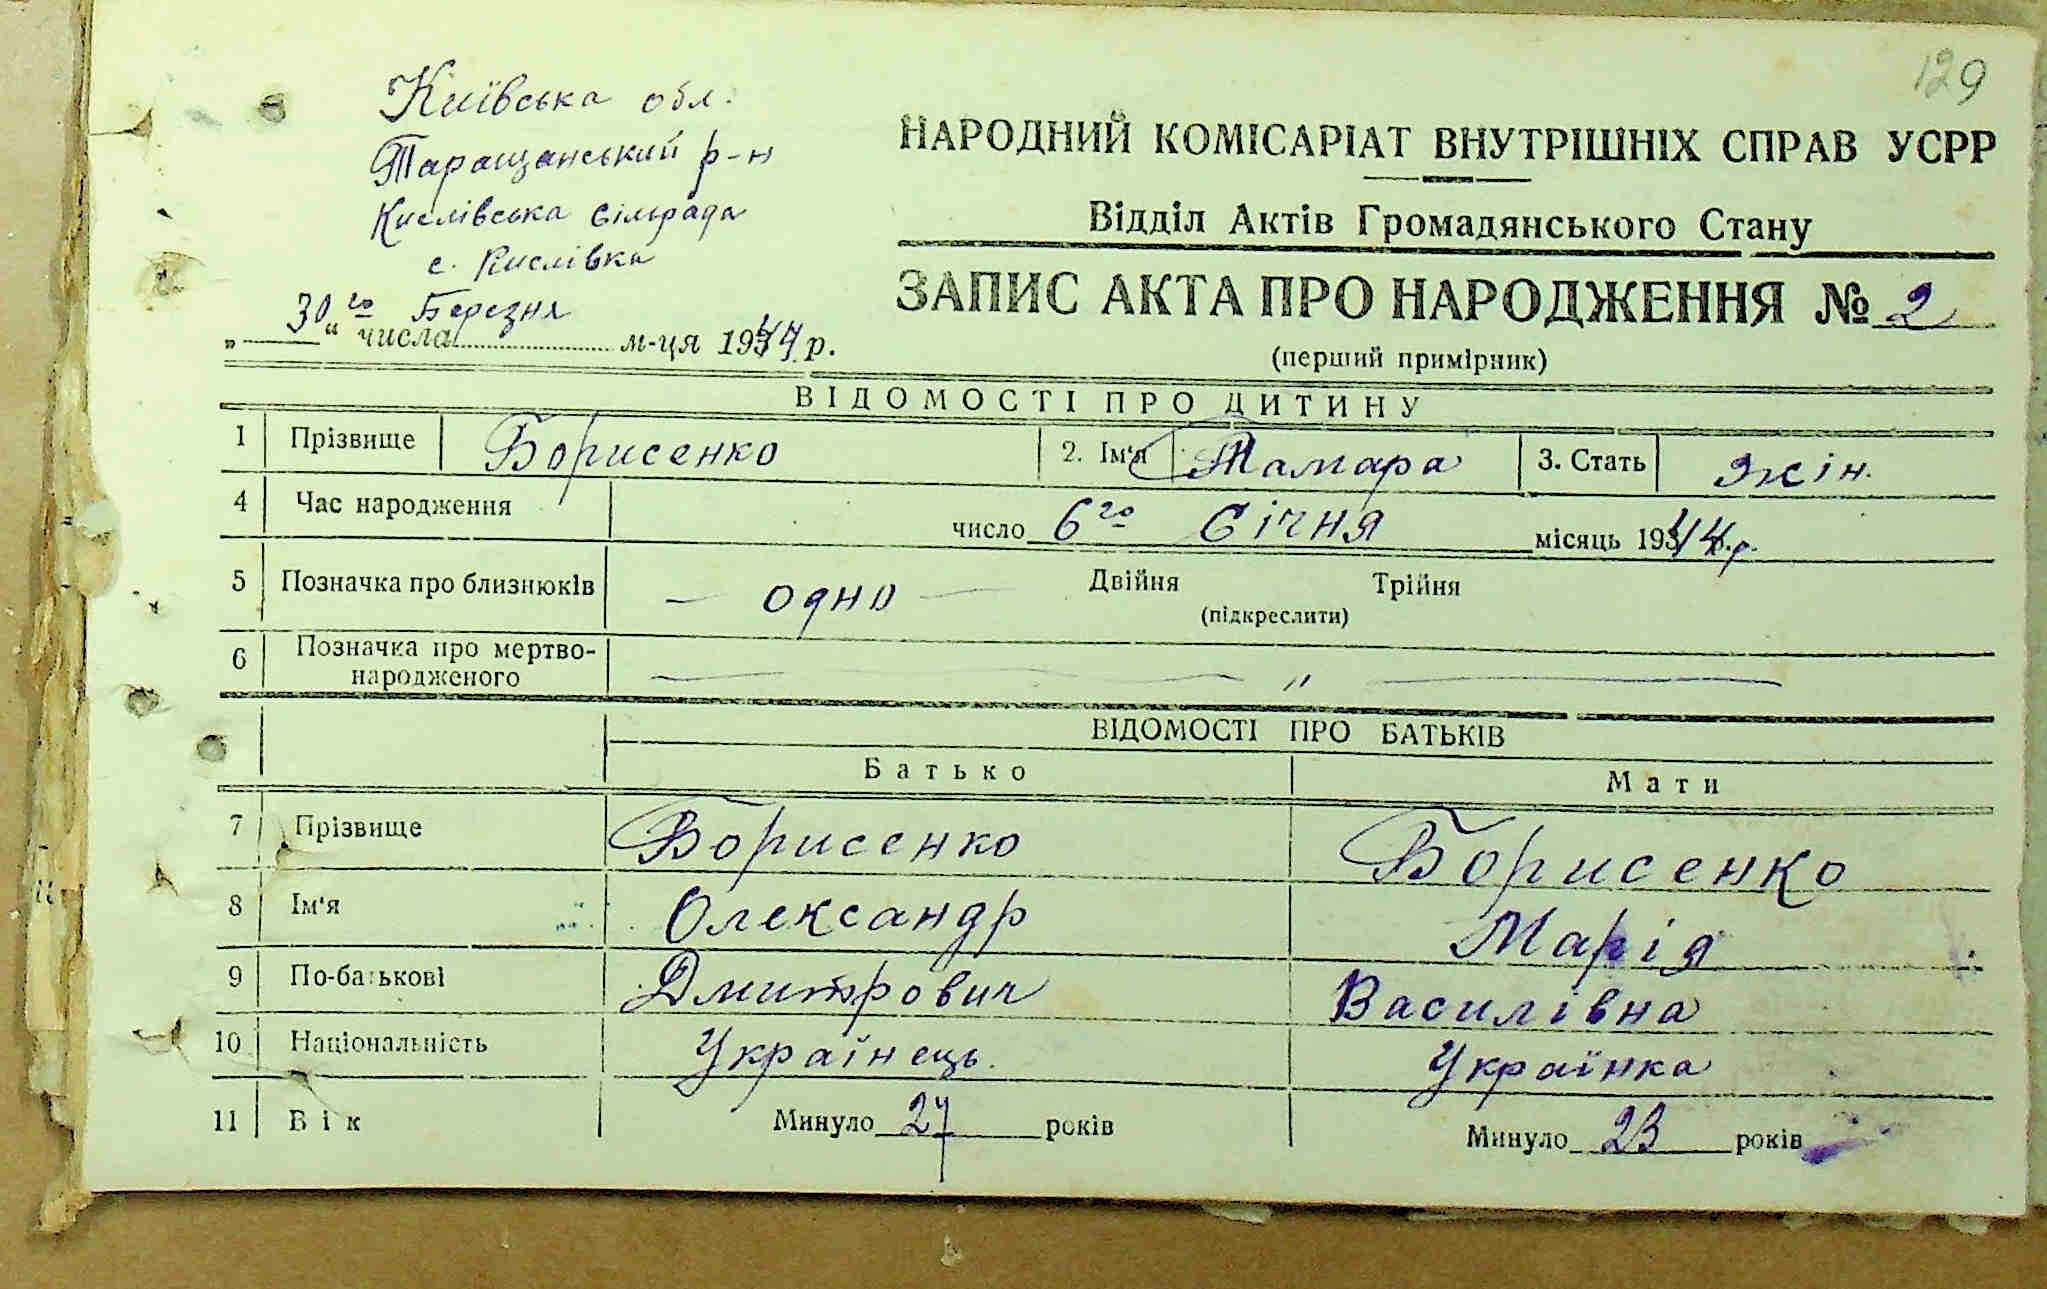 129
Київська обл.
Таращанський р-н
Кислівська сільрада
с. Кислівка
„30го“ числа Березня м-ця 1944 р.
НАРОДНИЙ КОМІСАРІАТ ВНУТРІШНІХ СПРАВ УСРР
Відділ Актів Громадянського Стану
ЗАПИС АКТА ПРО НАРОДЖЕННЯ № 2
(перший примірник)
ВІДОМОСТІ ПРО ДИТИНУ
1 Прізвище Борисенко 2. Ім'я Тамара 3. Стать жін.
4 Час народження число 6го Січня місяць 1944 р.
5 Позначка про близнюків — одно — Двійня Трійня
(підкреслити)
6 Позначка про мертво-
народженого — " —
ВІДОМОСТІ ПРО БАТЬКІВ
Батько Мати
7 Прізвище Борисенко Борисенко
8 Ім'я Олександр Марія
9 По-батькові Дмитрович Василівна
10 Національність Українець. Українка
11 Вік Минуло 27 років Минуло 23 років